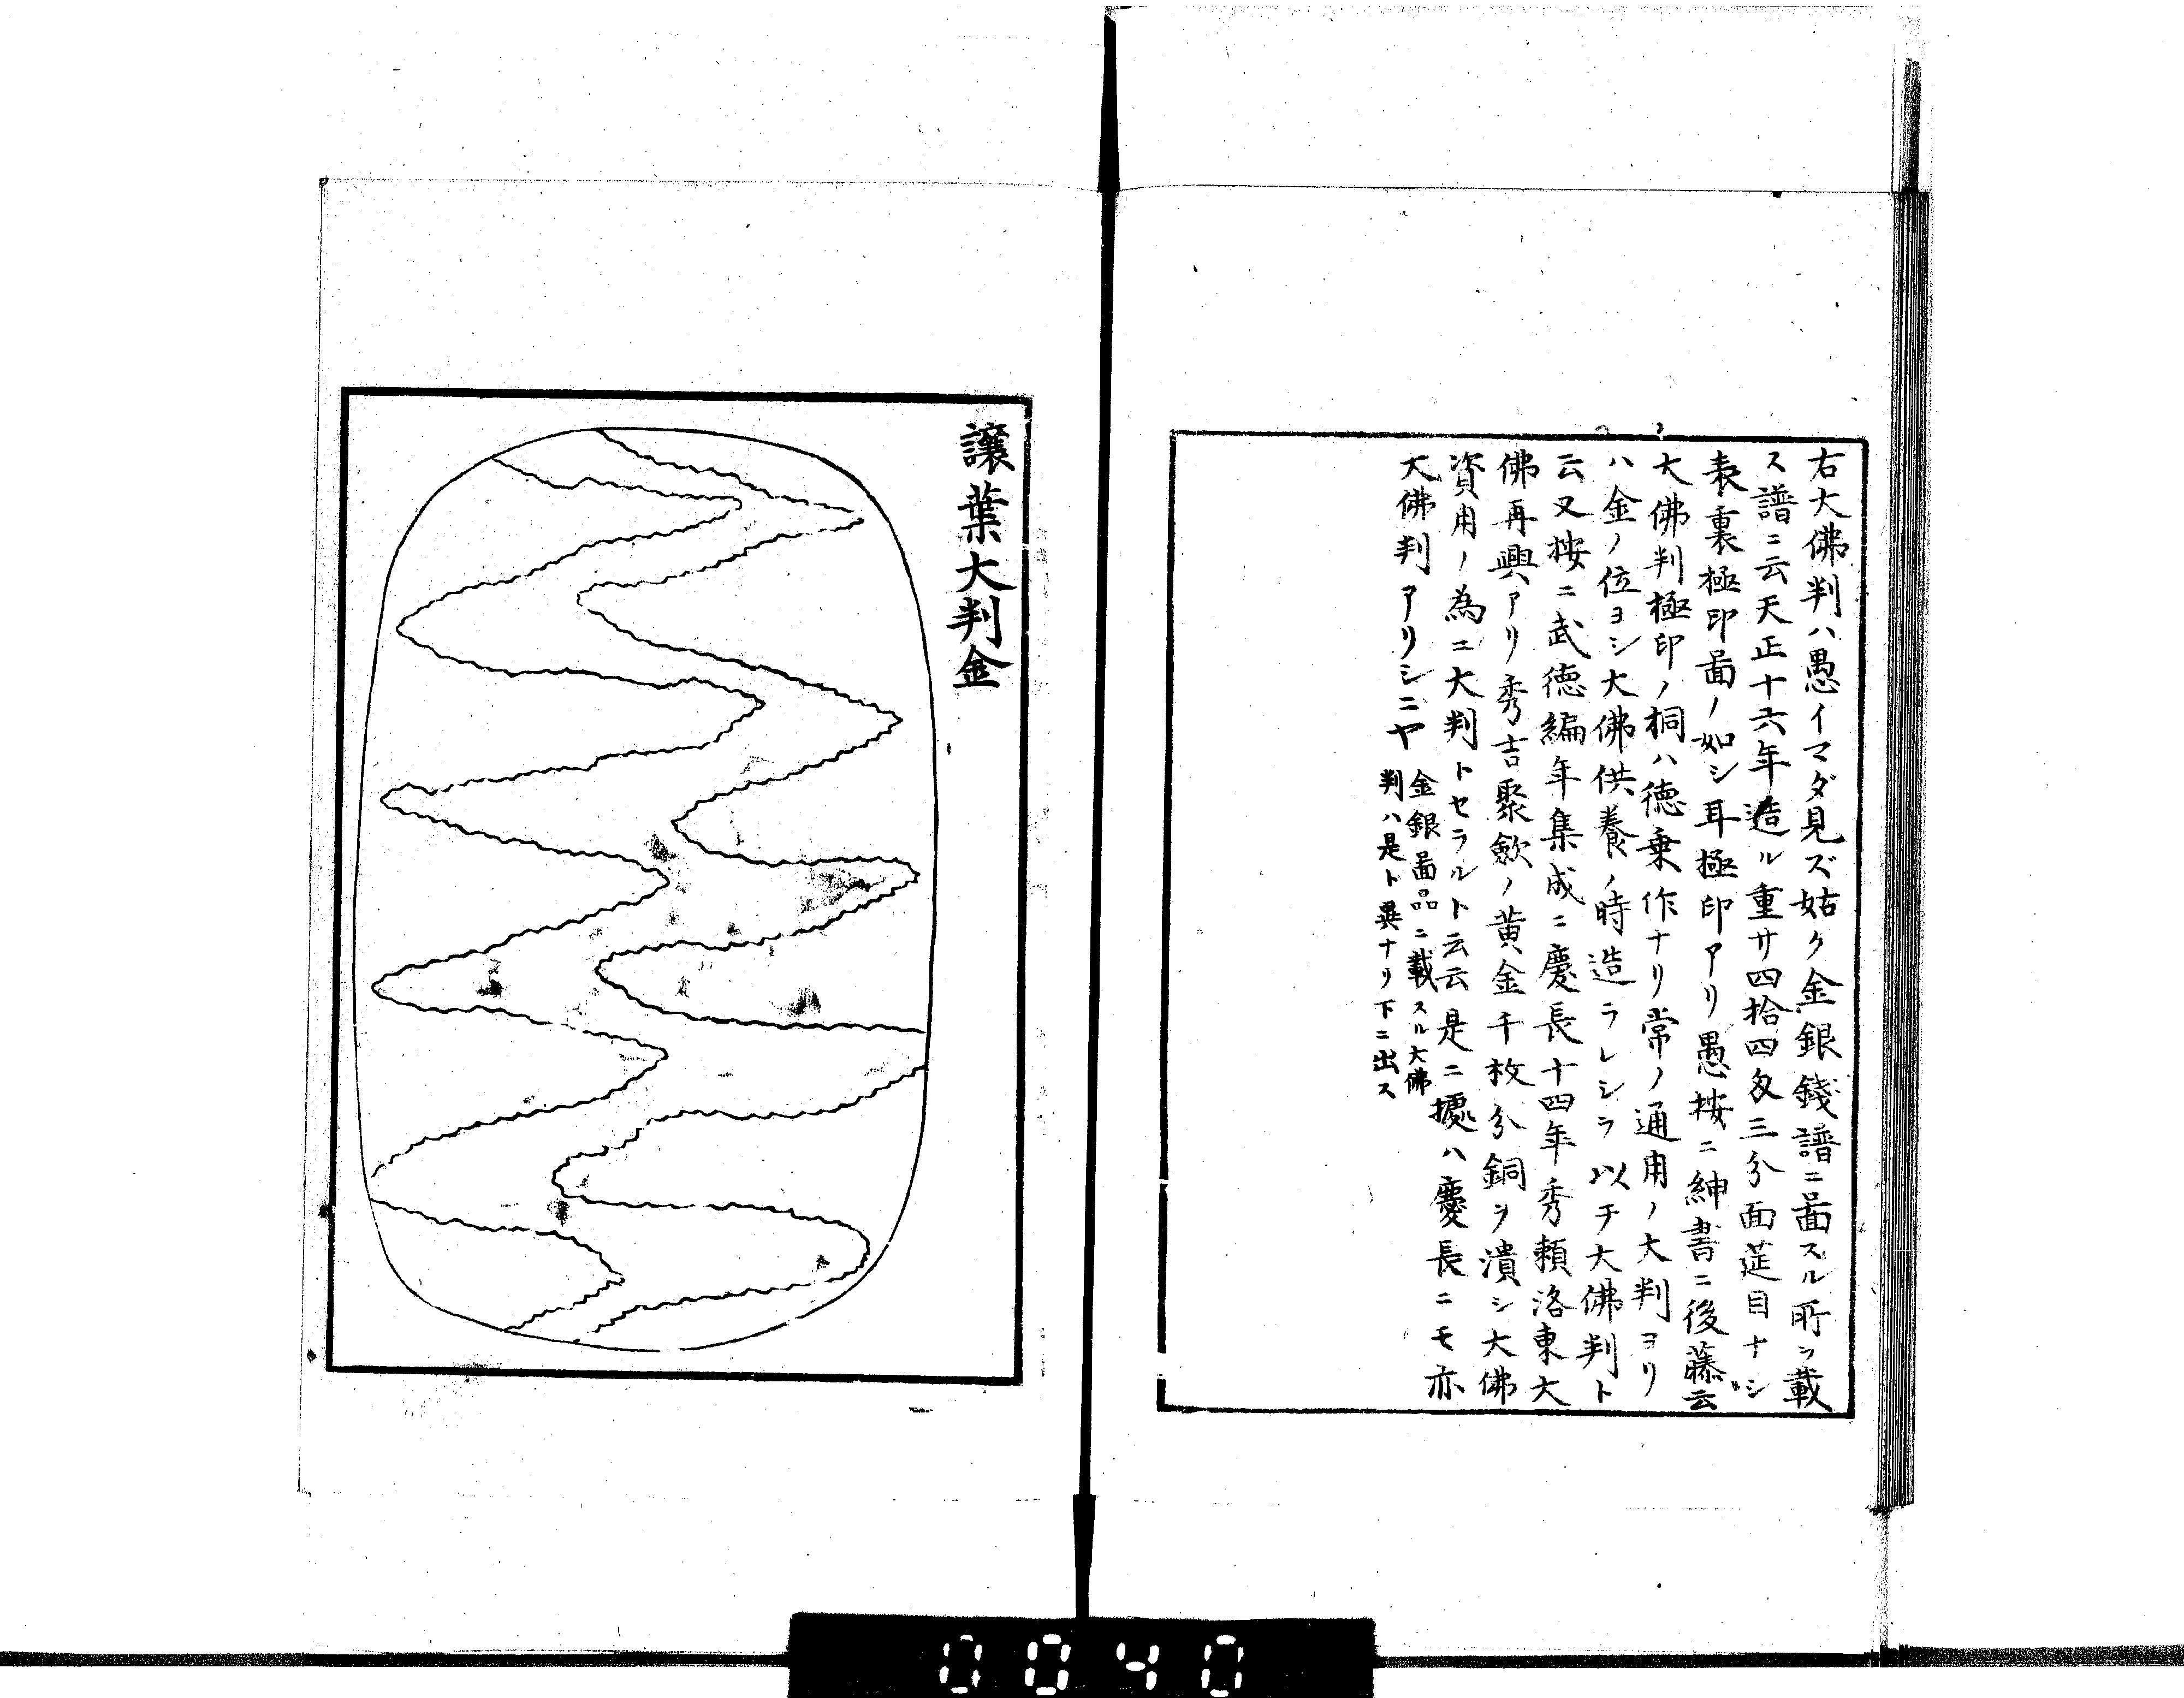 右大佛判ハ愚イマダ見ズ姑ク金銀錢譜ニ啚スル所ヲ載
ス譜ニ云天正十六年造ル重サ四拾四匁三分面莚目ナシ
表裏極印啚ノ如シ耳極印アリ愚按ニ紳書ニ後藤云
大佛判極印ノ桐ハ徳乗作ナリ常ノ通用ノ大判ヨリ
ハ金ノ位ヨシ大佛供養ノ時造ラレシヲ以テ大佛判ト
云又按ニ武徳編年集成ニ慶長十四年秀頼洛東大
佛再興アリ秀吉聚歛ノ黄金千枚分銅ヲ潰シ大佛
資用ノ為ニ大判トセラルト云云是ニ據ハ慶長ニモ亦
大佛判アリシニヤ
金銀啚品ニ載スル大佛
判ハ是ト異ナリ下ニ出ス
讓葉大判金
0040